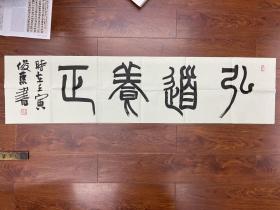 弘道養正
時在壬寅
俊廉書